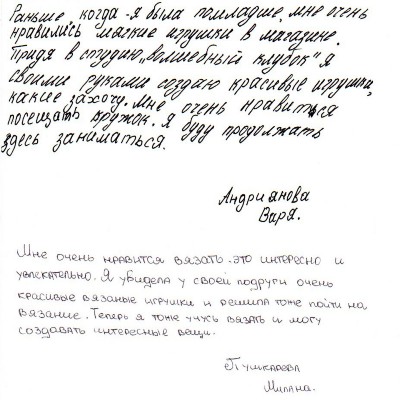 Раньше, когда я была помладше, мне очень
нравились мягкие игрушки в магазине.
Придя в студию „Волшебный клубок" я
своими руками создаю красивые игрушки,
какие захочу. Мне очень нравиться
посещать кружок. Я буду продолжать
здесь заниматься.
Андриянова
Варя.
Мне очень нравится вязать. Это интересно и
увлекательно. Я увидела у своей подруги очень
красивые вязаные игрушки и решила тоже пойти на
вязание. Теперь я тоже учусь вязать и могу
создавать интересные вещи.
Пушкарева
Милана.